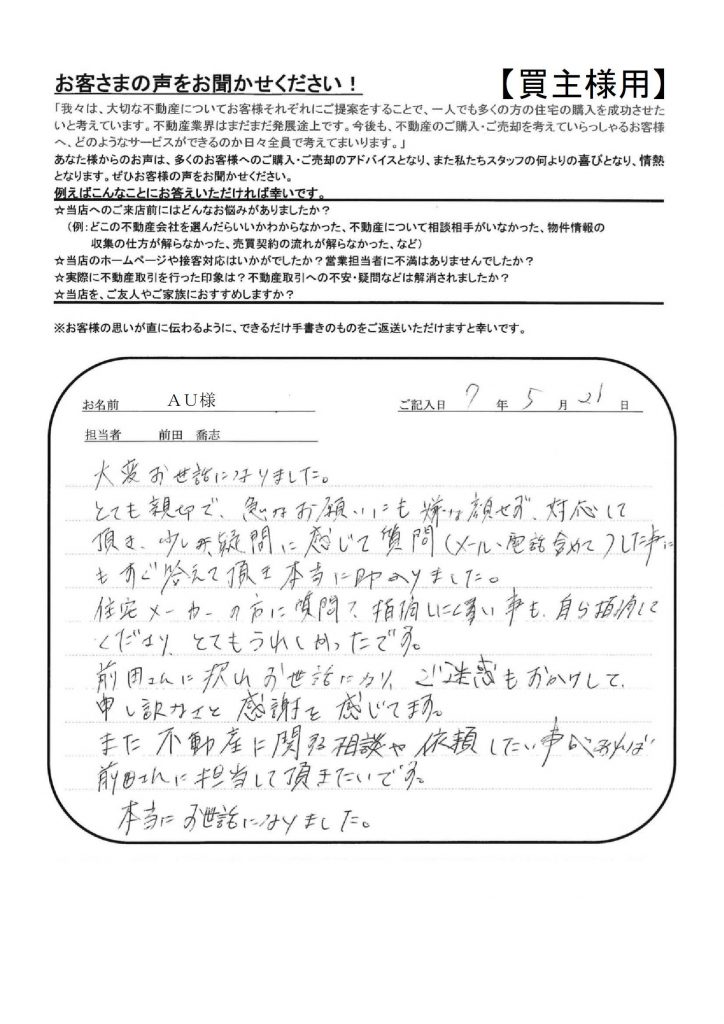 お客さまの声をお聞かせください！
【買主様用】
「我々は、大切な不動産についてお客様それぞれにご提案をすることで、一人でも多くの方の住宅の購入を成功させた
いと考えています。不動産業界はまだまだ発展途上です。今後も、不動産のご購入・ご売却を考えていらっしゃるお客様
へ、どのようなサービスができるのか日々全員で考えてまいります。」
あなた様からのお声は、多くのお客様へのご購入・ご売却のアドバイスとなり、また私たちスタッフの何よりの喜びとなり、情熱
となります。ぜひお客様の声をお聞かせください。
例えばこんなことにお答えいただければ幸いです。
☆当店へのご来店前にはどんなお悩みがありましたか？
（例：どこの不動産会社を選んだらいいかわからなかった、不動産について相談相手がいなかった、物件情報の
収集の仕方が解らなかった、売買契約の流れが解らなかった、など）
☆当店のホームページや接客対応はいかがでしたか？営業担当者に不満はありませんでしたか？
☆実際に不動産取引を行った印象は？不動産取引への不安・疑問などは解消されましたか？
☆当店を、ご友人やご家族におすすめしますか？
※お客様の思いが直に伝わるように、できるだけ手書きのものをご返送いただけますと幸いです。
お名前 AU様 ご記入日 7 年 5 月 21 日
担当者 前田 喬志
大変お世話になりました。
とても親切で、急なお願いにも嫌な顔せず、対応して
頂き、少しの疑問に感じて質問（メール・電話含めて）した事に
もすぐ答えて頂き本当に助かりました。
住宅メーカーの方に質問や、指摘しにくい事も、自ら指摘して
くださり、とてもうれしかったです。
前田さんに沢山お世話になり、ご迷惑もおかけして、
申し訳なさと感謝を感じてます。
また不動産に関る相談や依頼したい事があれば
前田さんに担当して頂きたいです。
本当にお世話になりました。